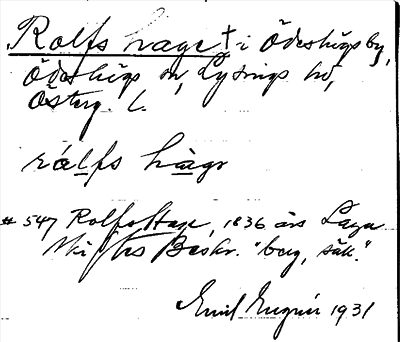 Rolfs hage † i Ödeshögs by,
Ödeshögs sn, Lysings hd,
Österg. l.
rålfs hago
# 547 Rolfs Hage, 1836 års Laga
skiftes Beskr. "berg, säk."
Emil 1931